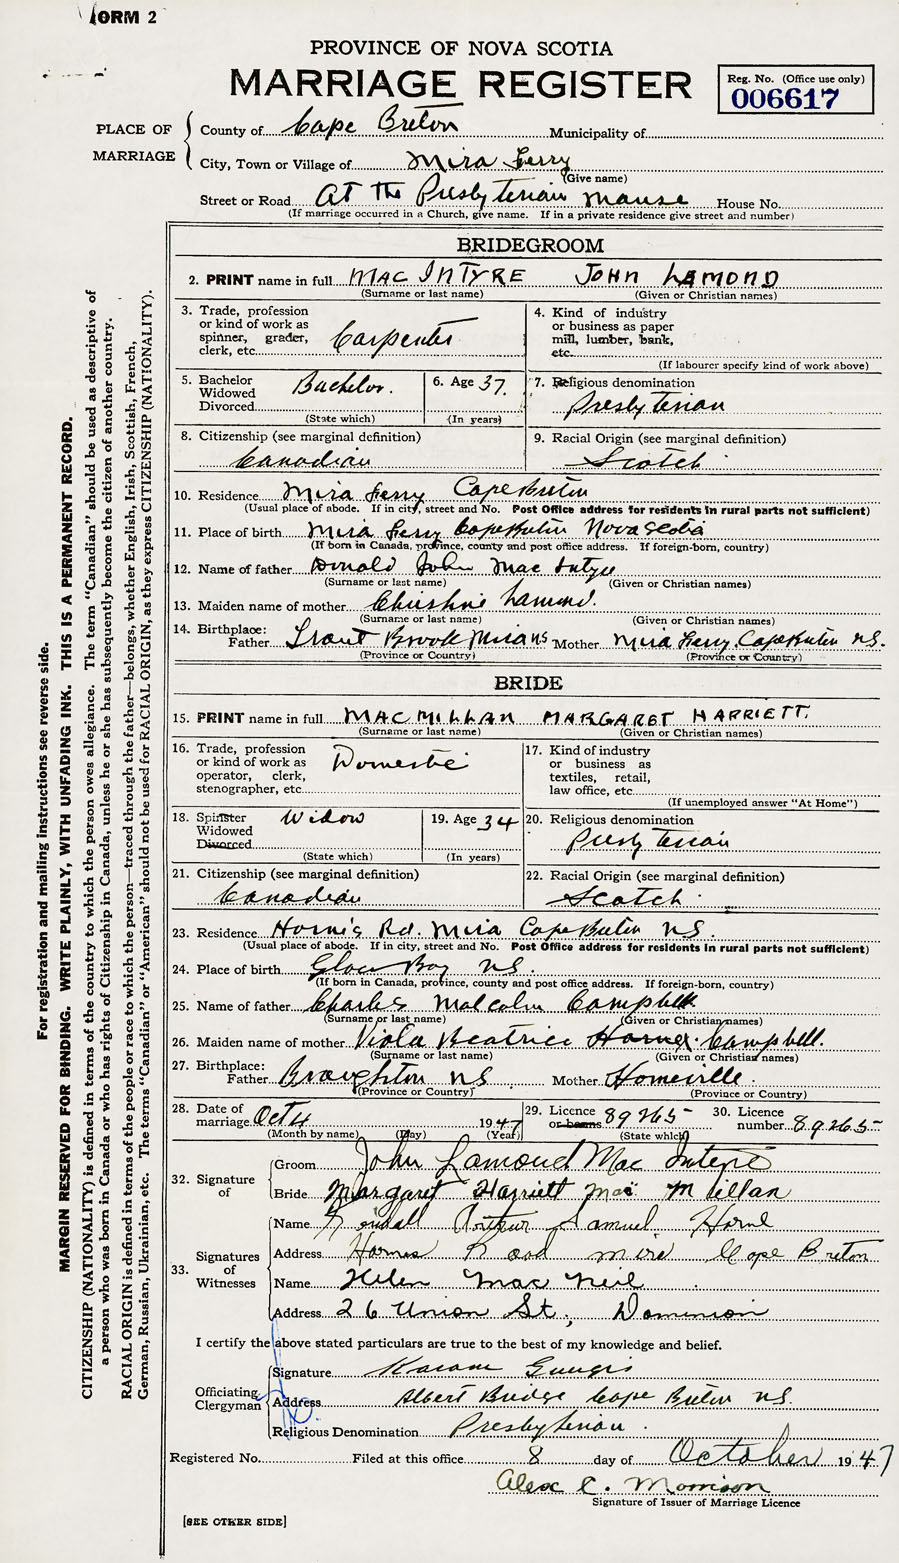 FORM 2
PROVINCE OF NOVA SCOTIA
MARRIAGE REGISTER
Reg. No. (Office use only)
006617
PLACE OF MARRIAGE
County of Cape Breton Municipality of
City, Town or Village of Mira Ferry
(Give name)
Street or Road At The Presbyterian Manse House No.
(If marriage occurred in a Church, give name. If in a private residence give street and number)
BRIDEGROOM
2. PRINT name in full MAC INTYRE JOHN LAMOND
(Surname or last name) (Given or Christian names)
3. Trade, profession or kind of work as spinner, grader, clerk, etc. Carpenter
4. Kind of industry or business as paper mill, lumber, bank, etc.
(If labourer specify kind of work above)
5. Bachelor Widowed Divorced Bachelor.
(State which)
6. Age 37.
(In years)
7. Religious denomination
Presbyterian
8. Citizenship (see marginal definition)
Canadian
9. Racial Origin (see marginal definition)
Scotch
10. Residence Mira Ferry Cape Breton
(Usual place of abode. If in city, street and No. Post Office address for residents in rural parts not sufficient)
11. Place of birth Mira Ferry Cape Breton Nova Scotia
(If born in Canada, province, county and post office address. If foreign-born, country)
12. Name of father Donald John Mac Intyre
(Surname or last name) (Given or Christian names)
13. Maiden name of mother Christine Lamond.
(Surname or last name) (Given or Christian names)
14. Birthplace: Father Trout Brook Mira NS Mother Mira Ferry Cape Breton N.S.
(Province or Country) (Province or Country)
BRIDE
15. PRINT name in full MAC MILLAN MARGARET HARRIETT.
(Surname or last name) (Given or Christian names)
16. Trade, profession or kind of work as operator, clerk, stenographer, etc. Domestic
17. Kind of industry or business as textiles, retail, law office, etc.
(If unemployed answer "At Home")
18. Spinster Widowed Divorced Widow
(State which)
19. Age 34
(In years)
20. Religious denomination
Presbyterian
21. Citizenship (see marginal definition)
Canadian
22. Racial Origin (see marginal definition)
Scotch
23. Residence Horne's Rd. Mira Cape Breton N.S.
(Usual place of abode. If in city, street and No. Post Office address for residents in rural parts not sufficient)
24. Place of birth Glace Bay N.S.
(If born in Canada, province, county and post office address. If foreign-born, country)
25. Name of father Charles Malcolm Campbell
(Surname or last name) (Given or Christian names)
26. Maiden name of mother Viola Beatrice Horne Campbell.
(Surname or last name) (Given or Christian names)
27. Birthplace: Father Broughton N.S. Mother Homeville.
(Province or Country) (Province or Country)
28. Date of marriage Oct 4 1947
(Month by name) (Day) (Year)
29. Licence or banns 89265
(State which)
30. Licence number 89265
32. Signature of
Groom John Lamond Mac Intyre
Bride Margaret Harriett Mac Millan
33. Signatures of Witnesses
Name Arthur Samuel Horne
Address Hornes Road Mira Cape Breton
Name Helen MacNeil
Address 26 Union St., Dominion
I certify the above stated particulars are true to the best of my knowledge and belief.
Officiating Clergyman
Signature
Address Albert Bridge Cape Breton N.S.
Religious Denomination Presbyterian.
Registered No. Filed at this office 8 day of October 1947
Alex C. Morrison
Signature of Issuer of Marriage Licence
[SEE OTHER SIDE]
For registration and mailing instructions see reverse side.
MARGIN RESERVED FOR BINDING. WRITE PLAINLY, WITH UNFADING INK. THIS IS A PERMANENT RECORD.
CITIZENSHIP (NATIONALITY) is defined in terms of the country to which the person owes allegiance. The term "Canadian" should be used as descriptive of
a person who was born in Canada or who has rights of Citizenship in Canada, unless he or she has subsequently become the citizen of another country.
RACIAL ORIGIN is defined in terms of the people or race to which the person—traced through the father—belongs, whether English, Irish, Scottish, French,
German, Russian, Ukrainian, etc. The terms "Canadian" or "American" should not be used for RACIAL ORIGIN, as they express CITIZENSHIP (NATIONALITY).